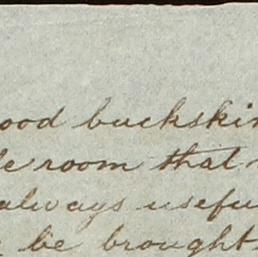 ood buckskin
le room that
always usefu
be brought